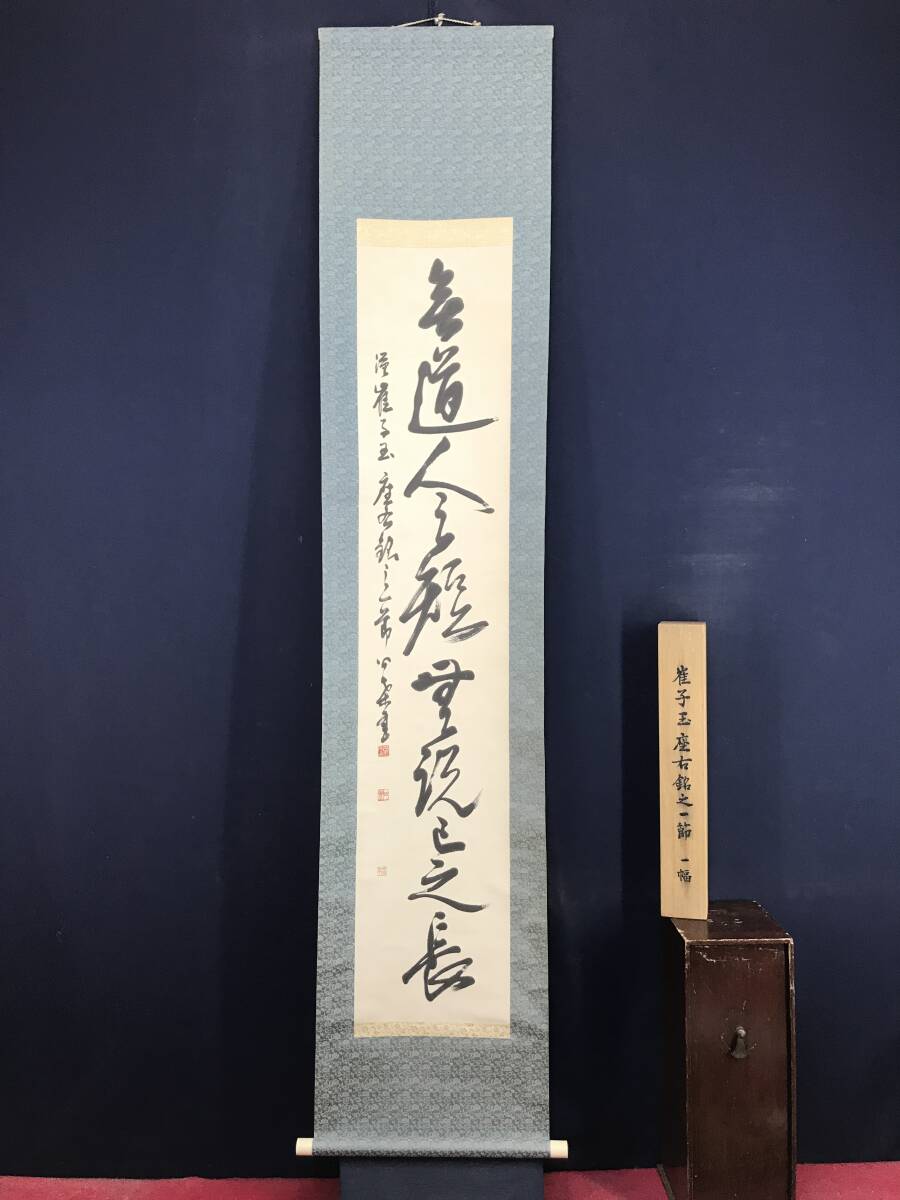 無道人之短無説己之長
漢崔子玉座右銘之一節
崔子玉座右銘之一節 一幅